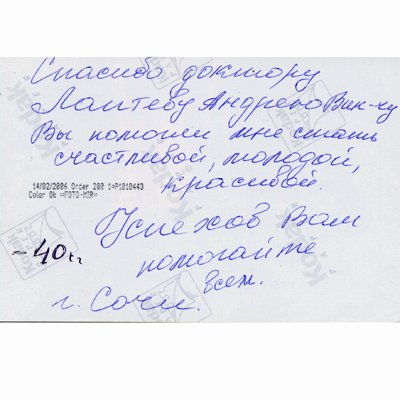 Спасибо доктору
Лаптеву Андрею Вик-чу
Вы помогли мне стать
счастливой, молодой,
красивой.
14/02/2006 Order 280 1=P1010443
Color Ok =FOTO-MIR=
Успехов Вам
-40 кг
помогайте
всем.
г. Сочи.
Kodak